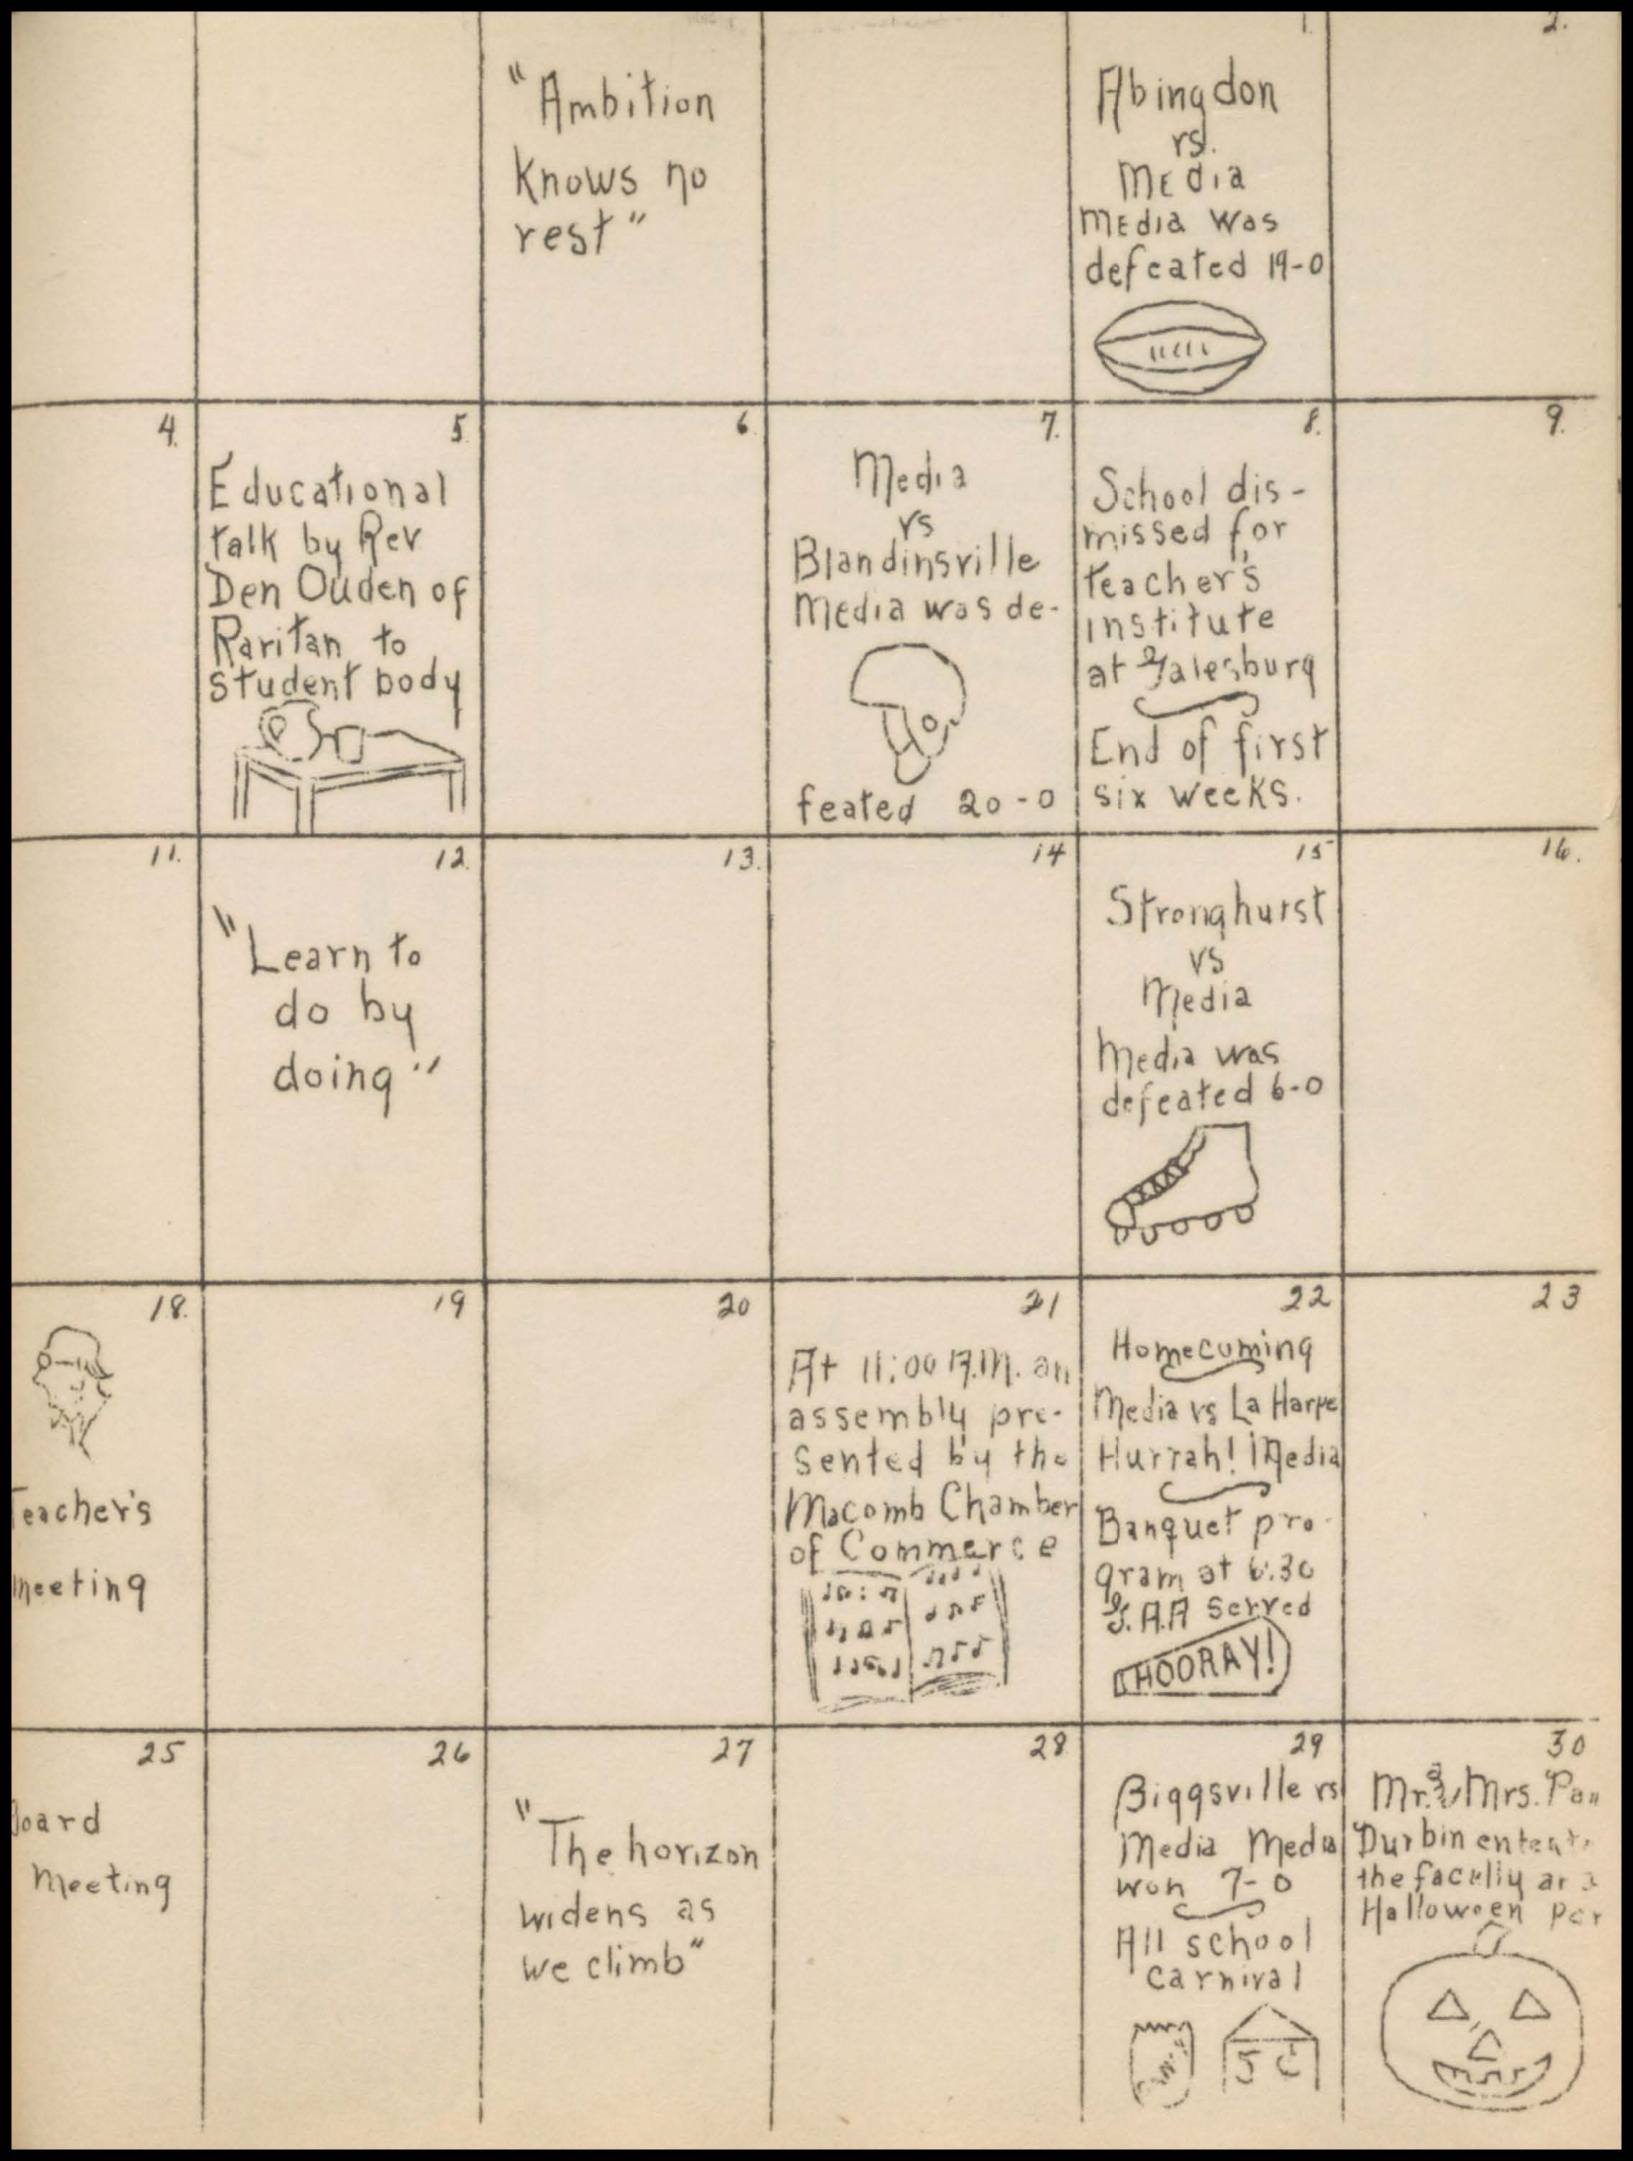 1.
2.
"Ambition
Knows no
rest"
Abingdon
vs.
Media
Media was
defeated 19-0
4.
5
6
7.
8.
9.
Educational
talk by Rev
Den Ouden of
Raritan to
student body
Media
vs
Blandinsville
Media was de-
feated 20-0
School dis-
missed for
teacher's
institute
at Galesburg
End of first
six weeks.
11.
12.
13.
14
15
16.
"Learn to
do by
doing"
Stronghurst
vs
Media
Media was
defeated 6-0
18.
19
20
21
22
23
Teacher's
meeting
At 11:00 A.M. an
assembly pre-
sented by the
Macomb Chamber
of Commerce
Homecuming
Media vs La Harpe
Hurrah! Media
Banquet pro-
gram at 6:30
G.A.A served
HOORAY!
25
26
27
28
29
30
Board
meeting
"The horizon
widens as
we climb"
Biggsville vs
Media Media
won 7-0
All school
carnival
5¢
Mr. & Mrs.
Durbin
the faculty
Halloween